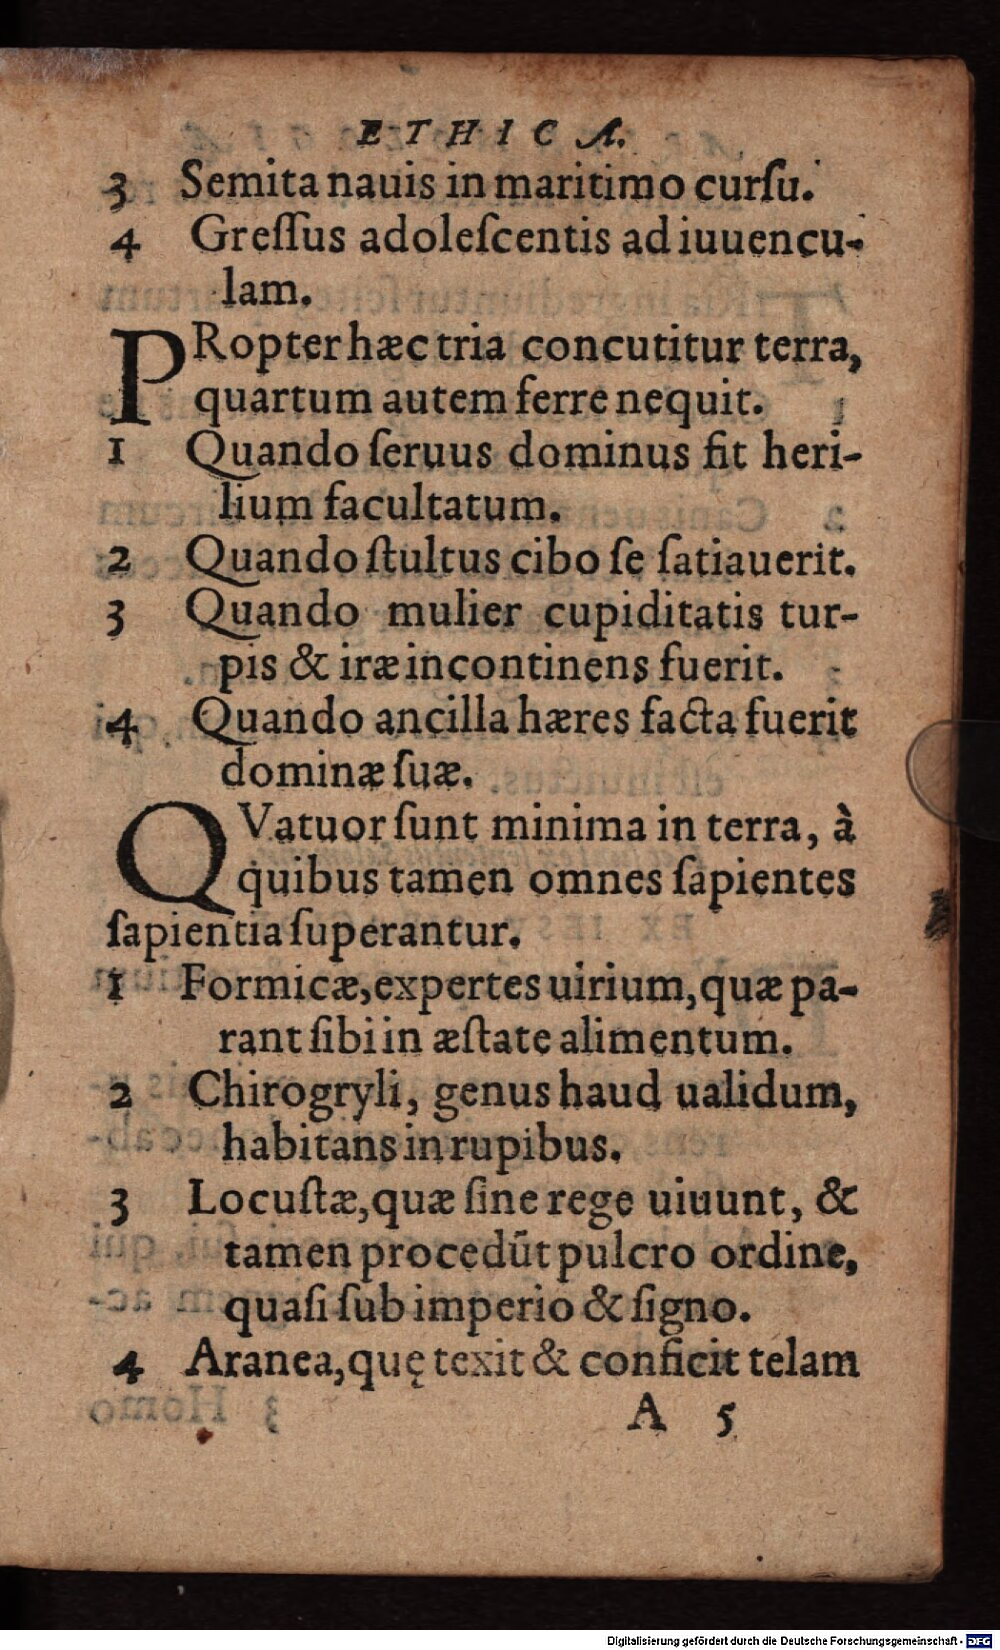 ETHICA.
3 Semita nauis in maritimo cursu.
4 Greſſus adoleſcentis ad iuuencu-
lam.
PRopter hæc tria concutitur terra,
quartum autem ferre nequit.
1 Quando ſeruus dominus fit heri-
lium facultatum.
2 Quando ſtultus cibo ſe ſatiauerit.
3 Quando mulier cupiditatis tur-
pis & iræ incontinens fuerit.
4 Quando ancilla hæres facta fuerit
dominæ ſuæ.
QVatuor ſunt minima in terra, à
quibus tamen omnes ſapientes
ſapientia ſuperantur.
1 Formicæ, expertes uirium, quæ pa-
rant ſibi in æſtate alimentum.
2 Chirogryli, genus haud ualidum,
habitans in rupibus.
3 Locuſtæ, quæ ſine rege uiuunt, &
tamen procedūt pulcro ordine,
quaſi ſub imperio & ſigno.
4 Aranea, quę texit & conficit telam
A 5
Digitalisierung gefördert durch die Deutsche Forschungsgemeinschaft - DFG